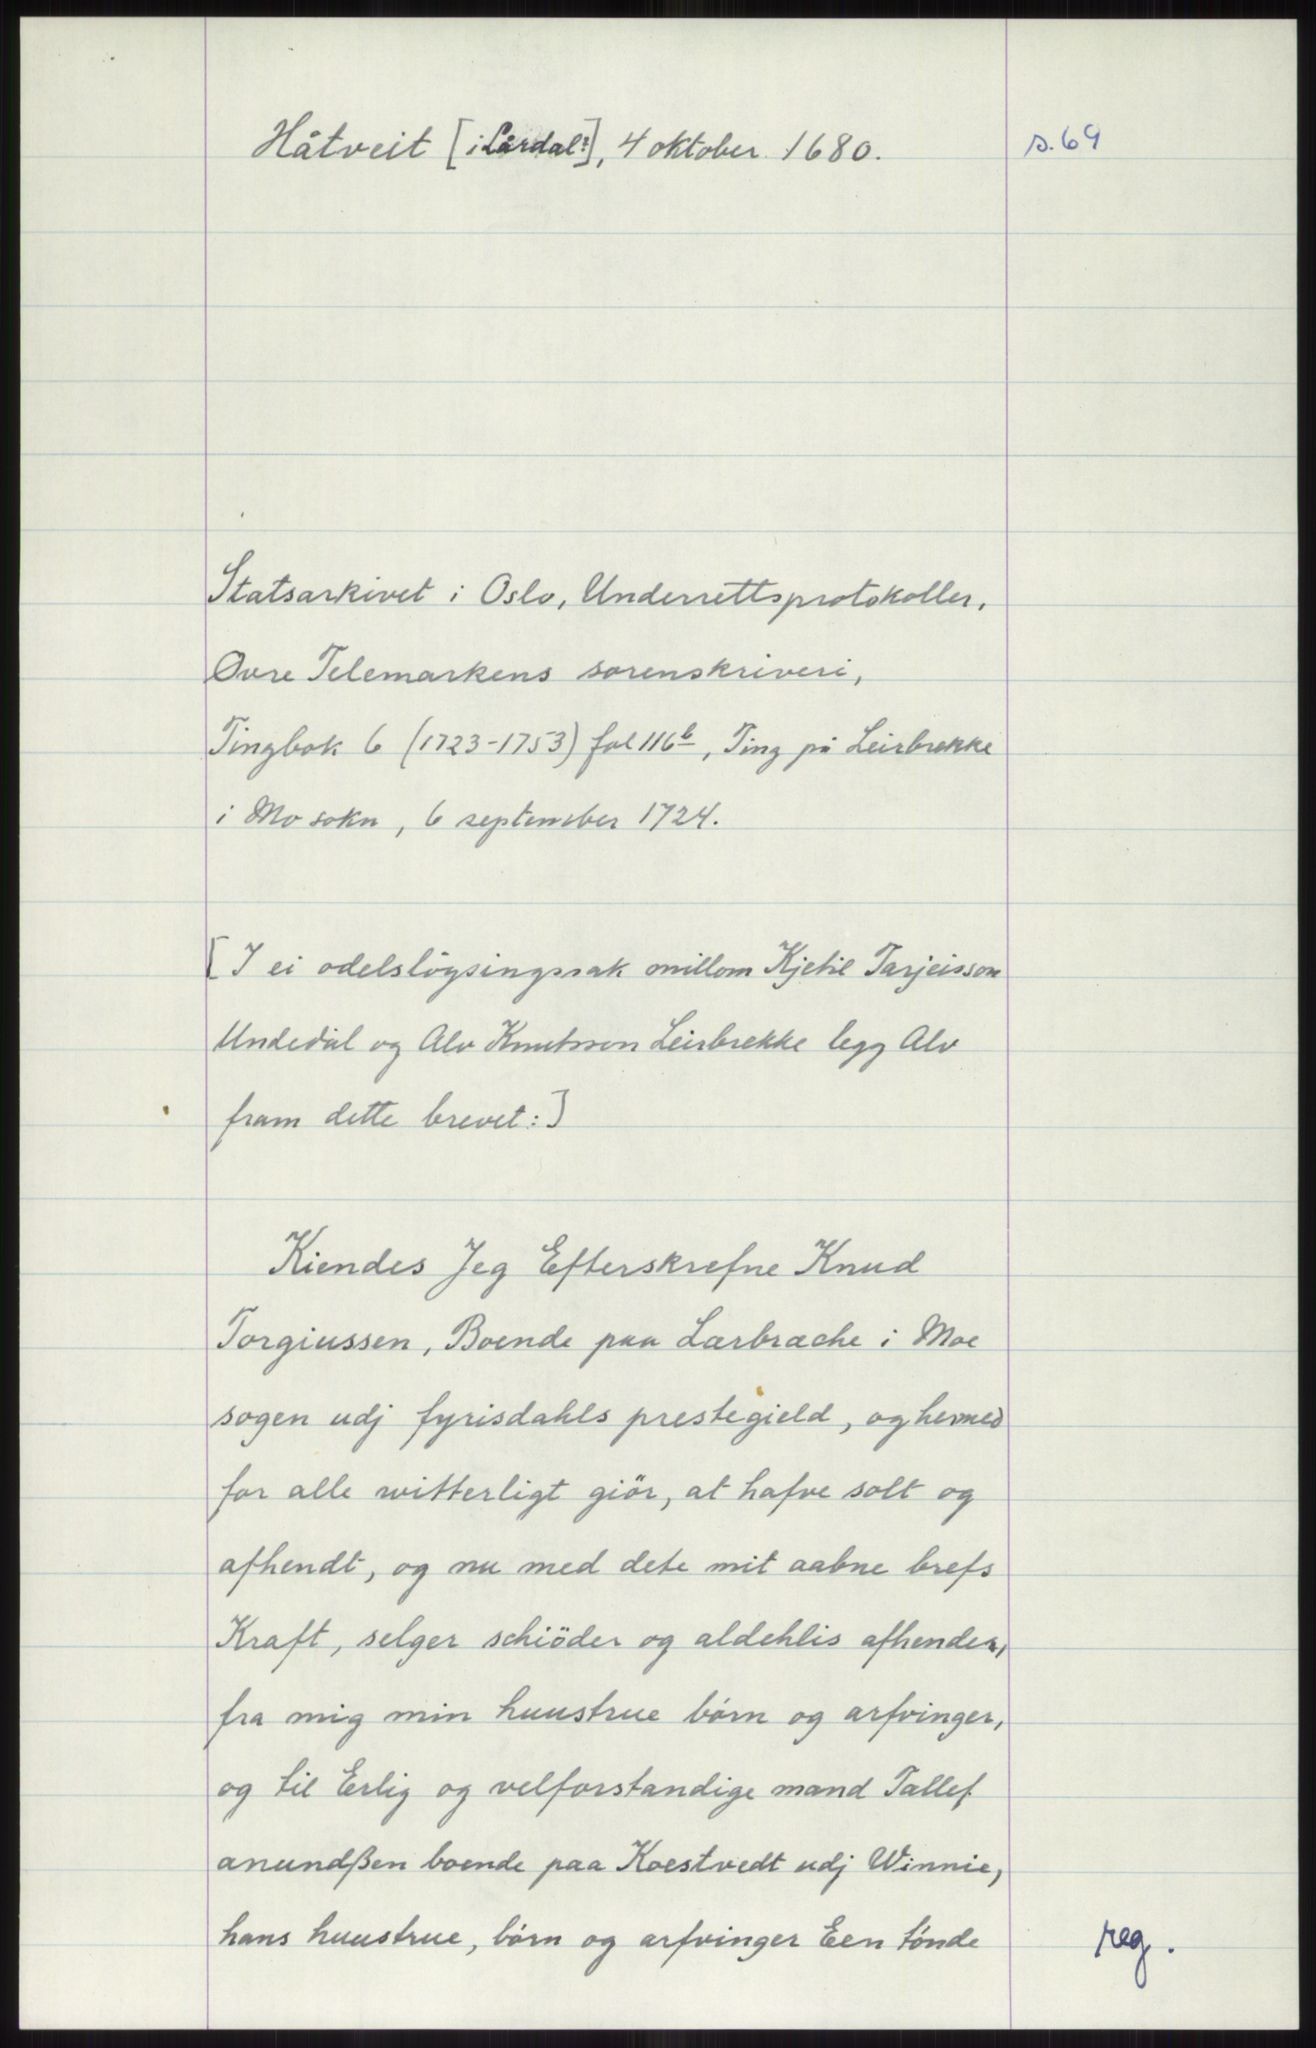 Håtveit [i Lårdal?], 4 oktober 1680.
s. 69
Statsarkivet i Oslo, Underrettsprotokoller,
Øvre Telemarkens sorenskriveri,
Tingbok 6 (1723-1753) fol 116b, Ting på Leirbrekke
i Mo sokn, 6 september 1724.
[I ei odelsløysingssak millom Kjetil Tarjeisson
Undedal og Alv Knutsson Leirbrekke legg Alv
fram dette brevet:]
Kiendes Jeg Efterskrefne Knud
Torgiussen, Boende paa Lærbræche i Moe
sogen udj fyrisdahls prestegield, og hermed
for alle witterligt giör, at hafve solt og
afhendt, og nu med dete mit aabne brefs
Kraft, selger schiöder og aldehlis afhender,
fra mig min huustrue börn og arfvinger,
og til Erlig og velforstandige mand Tallef
anundßen boende paa Koestvedt udj Winnie,
hans huustrue, börn og arfvinger Een tönde
reg.